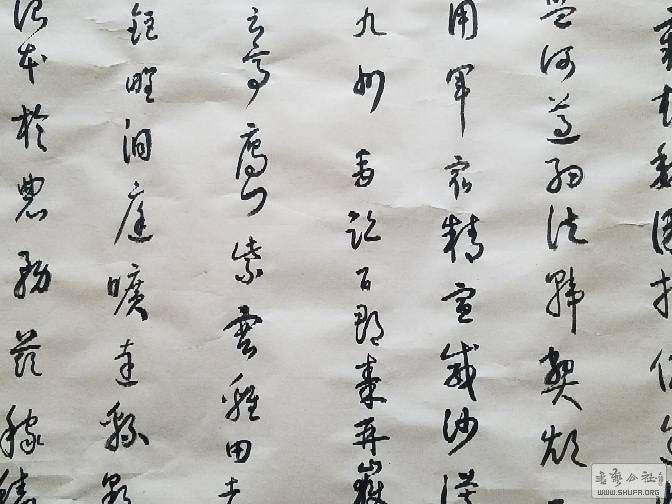 魏困橫假途
盟何遵約法韓弊煩
用軍最精宣威沙漠
九州禹跡百郡秦并嶽
云亭雁門紫塞雞田赤
鉅野洞庭曠遠綿邈
治本於農務茲稼穡
书艺公社
WWW.SHUFA.ORG